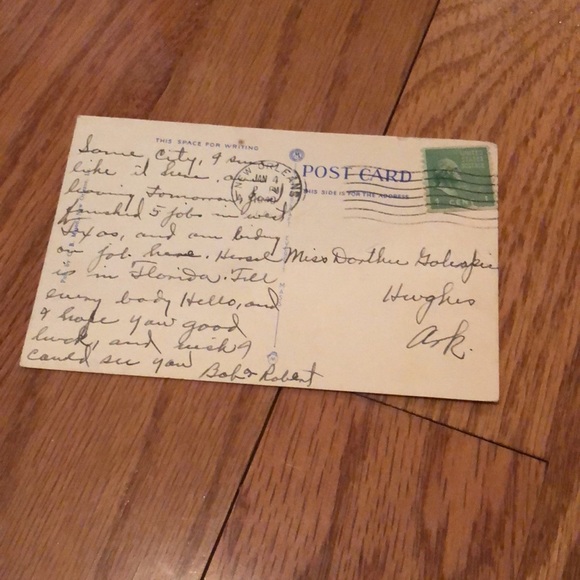 THIS SPACE FOR WRITING
Some city, I sure
like it here am
leaving Tomorrow, have
finished 5 jobs in west
Texas, and am biding
on job here.
is in Florida. Tell
every body Hello, and
I hope you good
luck, and wish I
could see you
Bob Robert
POST CARD
THIS SIDE IS FOR THE ADDRESS
NEW ORLEANS
JAN 4
PM
1 CENT
Miss Dorthie
Hughes
Ark.